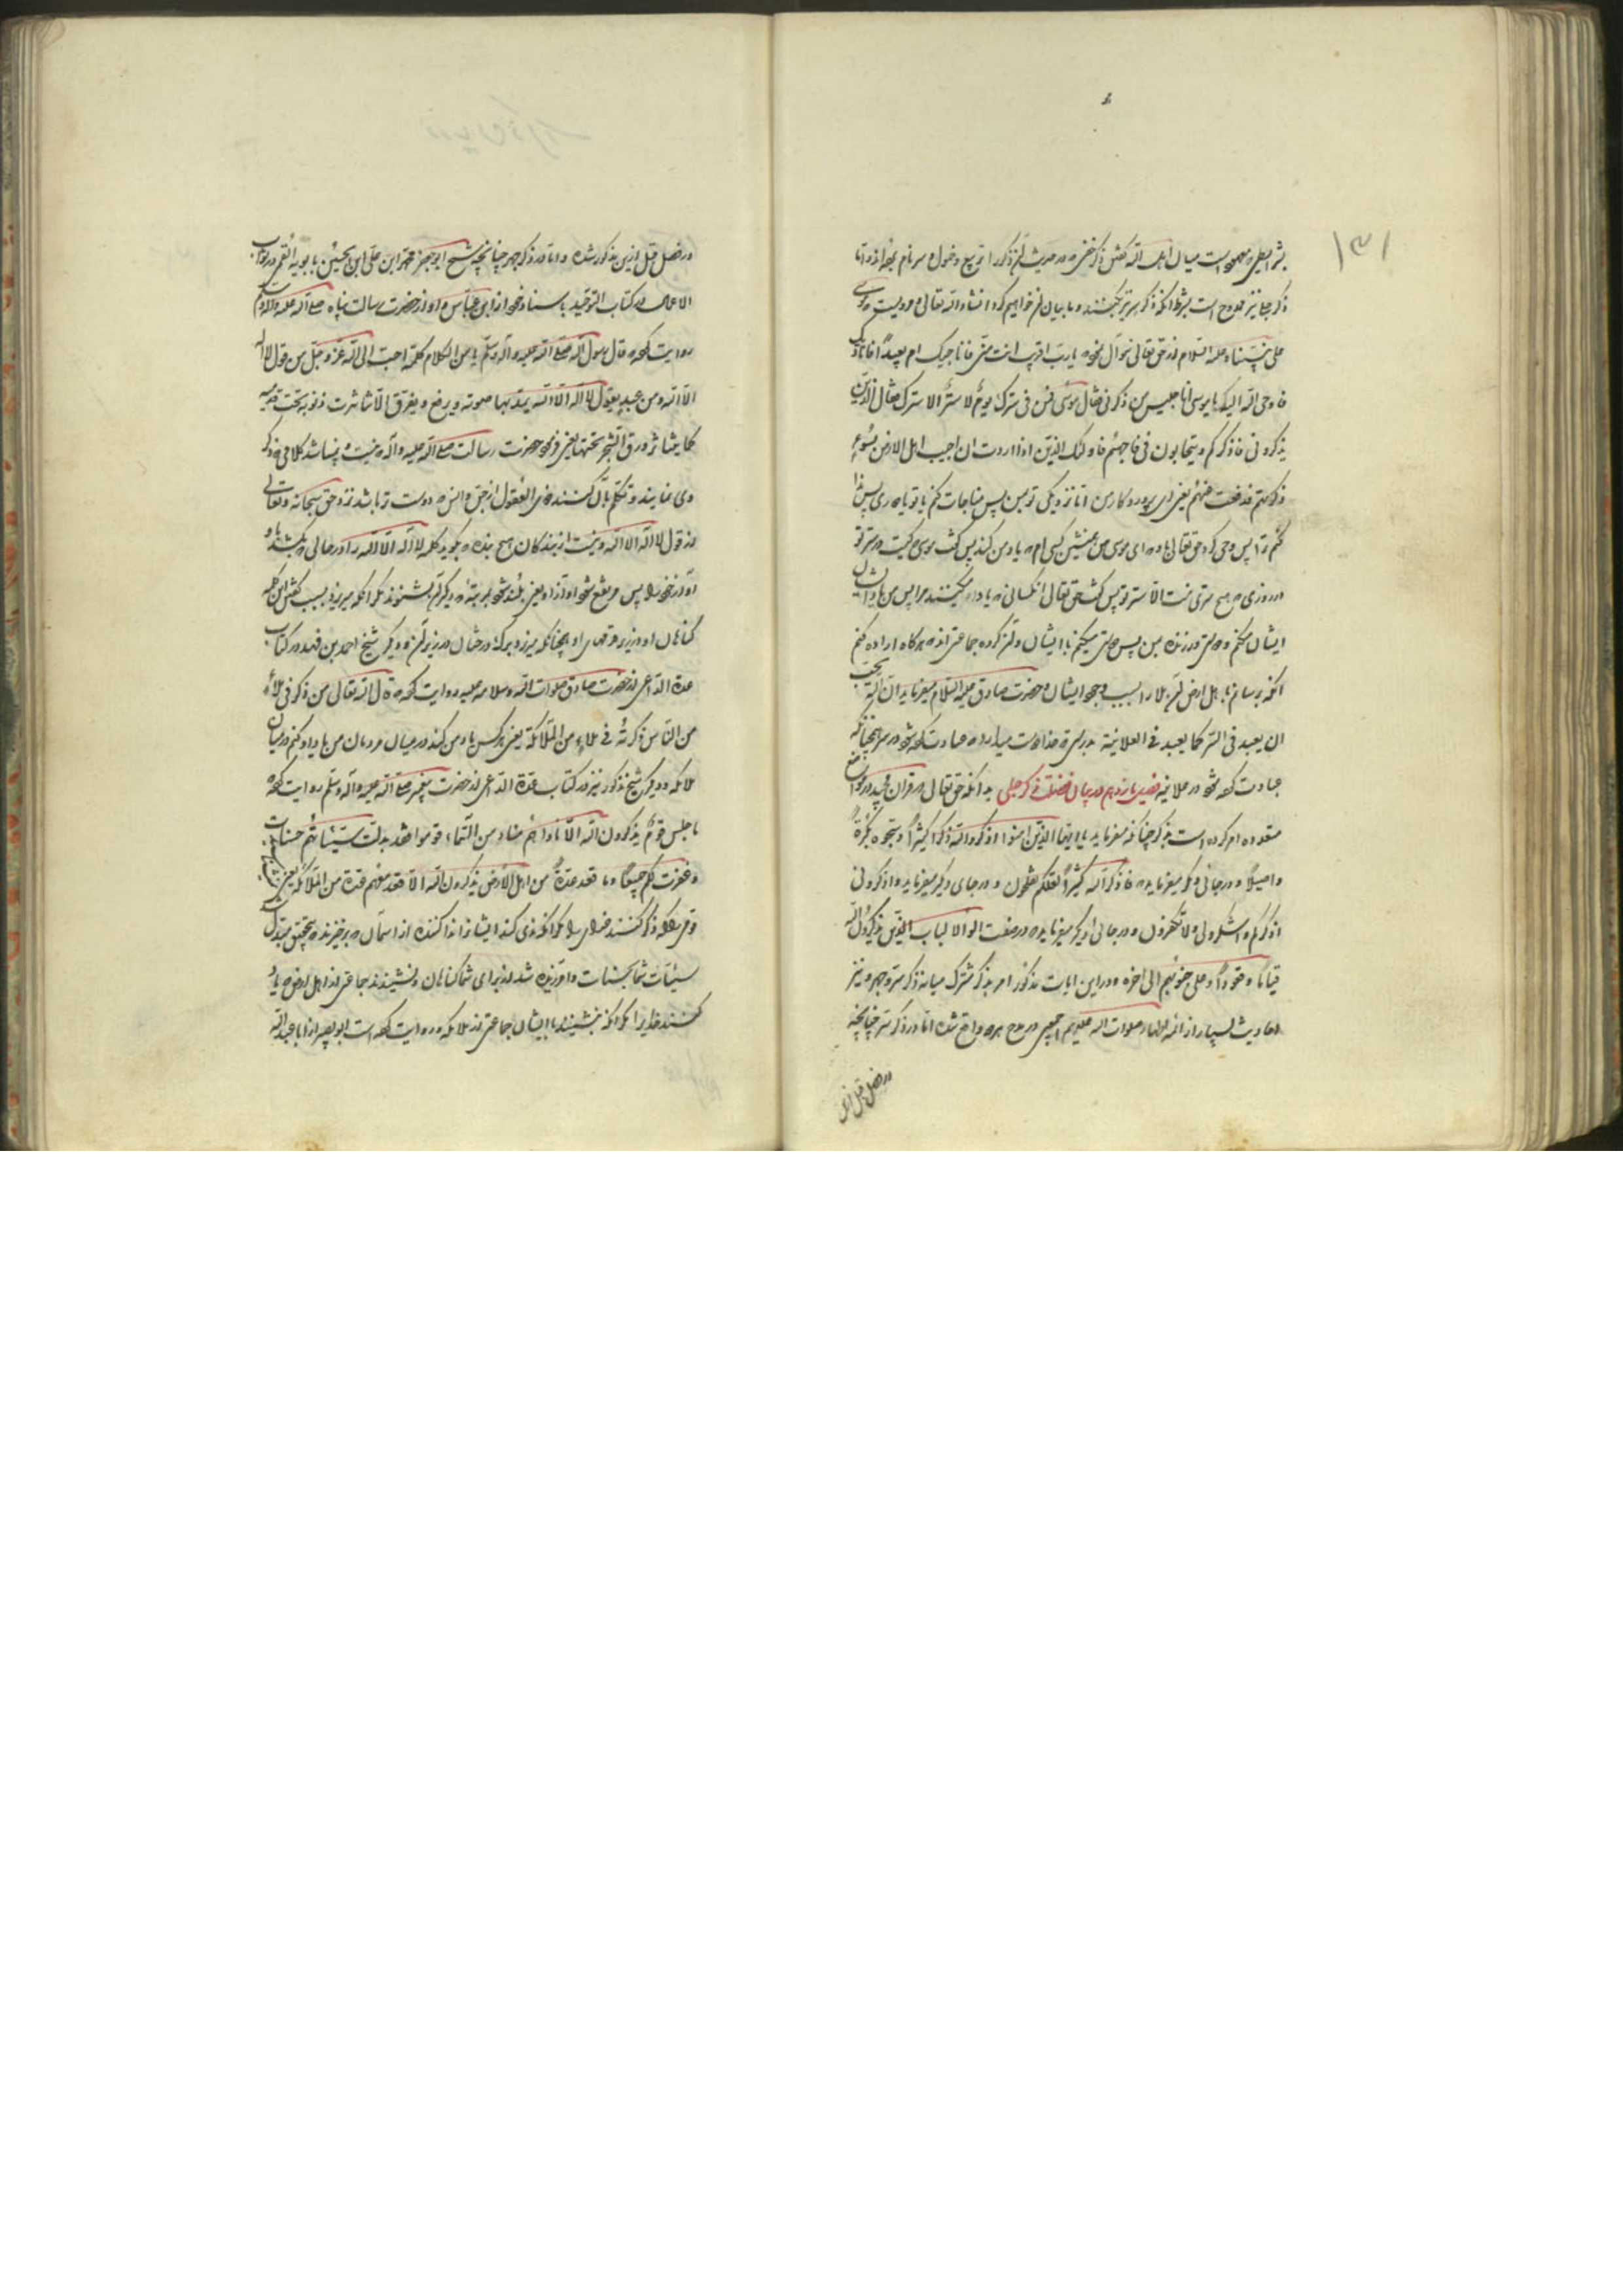 ۱۳۱
ذکر جلی نیز ممدوح است بشرط آنکه ذکر سر نیز بکنند و ما بیان آن خواهیم کرد انشاء الله تعالی و مرویست که موسی
علی نبینا و علیه السلام از حق تعالی سؤال نمود یا رب اقریب انت منی فاناجیک ام بعید فانادیک
فاوحی الله الیه یا موسی انا جلیس من ذکرنی فقال موسی فمن فی سترک یوم لا ستر الا سترک فقال الذین
یذکرونی فاذکرهم و یتحابون فی فاحبهم فاولئک الذین اذا اردت ان اصیب اهل الارض بسوء
ذکرتهم فدفعت عنهم یعنی ای پروردکار من آیا نزدیکی تو بمن پس مناجات کنم با تو یا دوری پس ندا
کنم ترا پس وحی کرد حق تعالی باو که ای موسی من همنشین کسی ام که یاد من کند پس گفت موسی کیست در ستر تو
در روزی که هیچ ستری نیست الا ستر تو پس گفت حق تعالی آنکسانی که یاد میکنند مرا پس من یاد ایشان
ایشان میکنم و دوستی ورزنده بمن پس دوستی میکنم با ایشان و آن گروه جماعتی اند که هرگاه اراده کنم
آنکه برسانم باهل ارض بلا را بسبب وجود ایشان و حضرت صادق علیه السلام میفرماید ان الله یحب
ان یعبد فی السر کما یعبد فی العلانیة بدرستی که خدا دوست میدارد که عبادت کرده شود در سر همچنانکه
عبادت کرده شود در علانیه فصل یازدهم در بیان فضیلت ذکر جلی بدانکه حق تعالی در قرآن مجید در مواضع
متعدده امر کرده است بذکر چنانکه میفرماید یا ایها الذین امنوا اذکروا الله ذکرا کثیرا و سبحوه بکرة
و اصیلا و در جائی دیگر میفرماید که فاذکروا الله کثیرا لعلکم تفلحون و در جای دیگر میفرماید که فاذکرونی
اذکرکم و اشکروا لی و لا تکفرون و در جائی دیگر میفرماید که در صفت اولو الالباب الذین یذکرون الله
قیاما و قعودا و علی جنوبهم الی اخره و در این ایات مذکور امر بذکر مشترک میانه ذکر سر و جهر و نیز
احادیث بسیار از ائمه اطهار صلوات الله علیهم اجمعین در مدح هر دو واقع شده اما در ذکر سر چنانچه
در فصل قبل از این
در فصل قبل ازین مذکور شده و اما در ذکر جهر چنانچه شیخ ابو جعفر محمد ابن علی ابن الحسین بابویه القمی در ثواب
الاعمال و کتاب التوحید باسناد خود از ابن عباس و او از حضرت رسالت پناه صلی الله علیه و آله و سلم
روایت کرده قال رسول الله صلی الله علیه و آله و سلم ما من الکلام کلمة احب الی الله عز و جل من قول لا اله
الا الله و من عبد یقول لا اله الا الله یمد بها صوته و یفرغ الا تناثرت ذنوبه تحت قدمیه
کما یتناثر ورق الشجر تحتها یعنی فرمود حضرت رسالت صلی الله علیه و آله که نیست و نباشد کلامی که ذکر
وی نمایند و تکلم بآن کنند ذوی العقول از جن و انس که دوست تر باشد نزد حق سبحانه و تعالی
از قول لا اله الا الله و نیست از بندگان هیچ بنده که بگوید کلمه لا اله الا الله را در حالی که بکشد
آواز خود را پس مرتفع شود آواز او یعنی بلند شود بمرتبه که دیگر آن بشنوند مگر آنکه میریزد بسبب گفتن این کلمه
گناهان او در زیر قدمهای او همچنانکه میریزد برگ درختان در زیر آن و دیگر شیخ احمد بن فهد در کتاب
عدة الداعی از حضرت صادق صلوات الله و سلامه علیه روایت کرده که قال الله تعالی من ذکرنی فی ملاء
من الناس ذکرته فی ملاء من الملائکة یعنی هر کس یاد من کند در میان مردمان من یاد او کنم در میان
ملائکه و دیگر شیخ مذکور نیز در کتاب عدة الداعی از حضرت پیغمبر صلی الله علیه و آله و سلم روایت کرده
ما جلس قوم یذکرون الله الا ناداهم مناد من السماء قوموا فقد بدلت سیئاتکم حسنات
و غفرت لکم جمیعا و ما قعد عدة من اهل الارض یذکرون الله الا قعد معهم عدة من الملائکة یعنی
سیئات شما بحسنات و آمرزیده شد از برای شما گناهان و ننشینند جماعتی از اهل ارض که یاد
کنند خدایرا مگر آنکه بنشینند با ایشان جماعتی از ملائکه و روایت کرده است ابو بصیر از ابا عبد الله